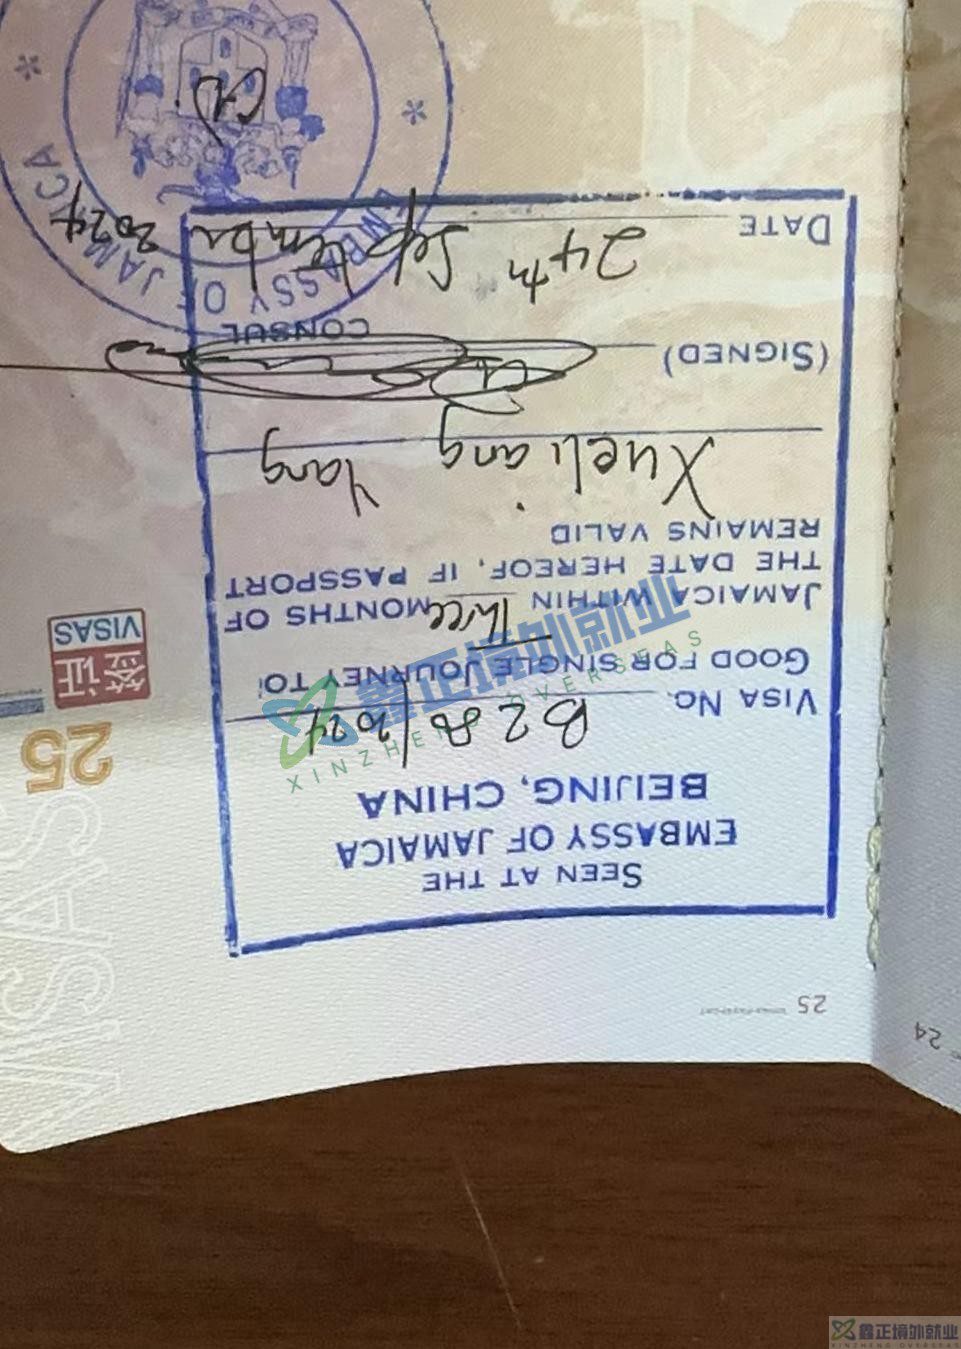 25
SEEN AT THE
EMBASSY OF JAMAICA
BEIJING, CHINA
VISA NO. B258/2024
GOOD FOR SINGLE JOURNEY TO
JAMAICA WITHIN Three MONTHS OF
THE DATE HEREOF, IF PASSPORT
REMAINS VALID
Xueliang Yang
(SIGNED)
CONSUL
DATE 24th September 2024
EMBASSY OF JAMAICA
VISAS
25
签证
VISAS
24
鑫正境外就业
XINZHENG OVERSEAS
鑫正境外就业
XINZHENG OVERSEAS